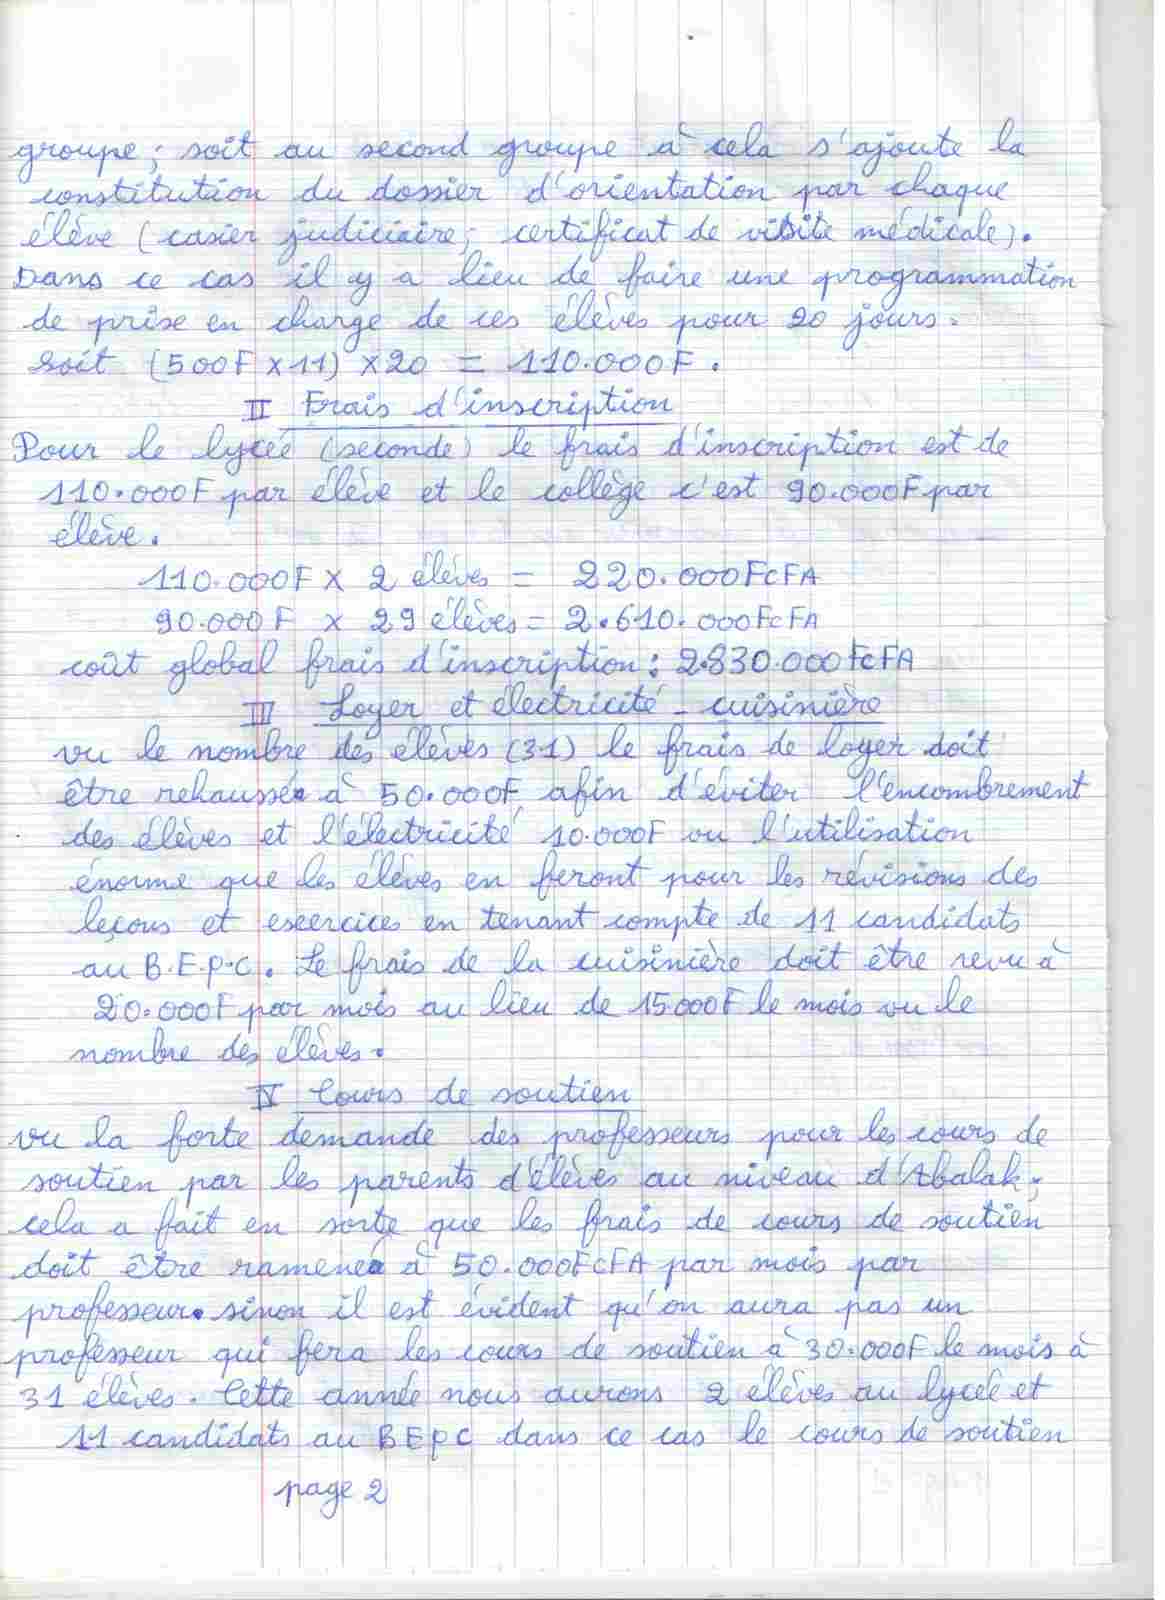 groupe; soit au second groupe à cela s'ajoute la
constitution du dossier d'orientation par chaque
élève (casier judiciaire; certificat de visite médicale).
Dans ce cas il y a lieu de faire une programmation
de prise en charge de ces élèves pour 20 jours.
soit (500F x 11) x 20 = 110.000F.
II Frais d'inscription
Pour le lycée (seconde) le frais d'inscription est de
110.000F par élève et le collège c'est 90.000F par
élève.
110.000F x 2 élèves = 220.000FCFA
90.000F x 29 élèves = 2.610.000FCFA
coût global frais d'inscription: 2.830.000FCFA
III Loyer et électricité - cuisinière
vu le nombre des élèves (31) le frais de loyer doit
être rehaussé à 50.000F afin d'éviter l'encombrement
des élèves et l'électricité 10.000F vu l'utilisation
énorme que les élèves en feront pour les révisions des
leçons et exercices en tenant compte de 11 candidats
au B.E.P.C. Le frais de la cuisinière doit être revu à
20.000F par mois au lieu de 15000F le mois vu le
nombre des élèves.
IV Cours de soutien
vu la forte demande des professeurs pour les cours de
soutien par les parents d'élèves au niveau d'Abalak;
cela a fait en sorte que les frais de cours de soutien
doit être ramené à 50.000FCFA par mois par
professeur. sinon il est évident qu'on aura pas un
professeur qui fera les cours de soutien à 30.000F le mois à
31 élèves. Cette année nous aurons 2 élèves au lycée et
11 candidats au BEPC dans ce cas le cours de soutien
page 2